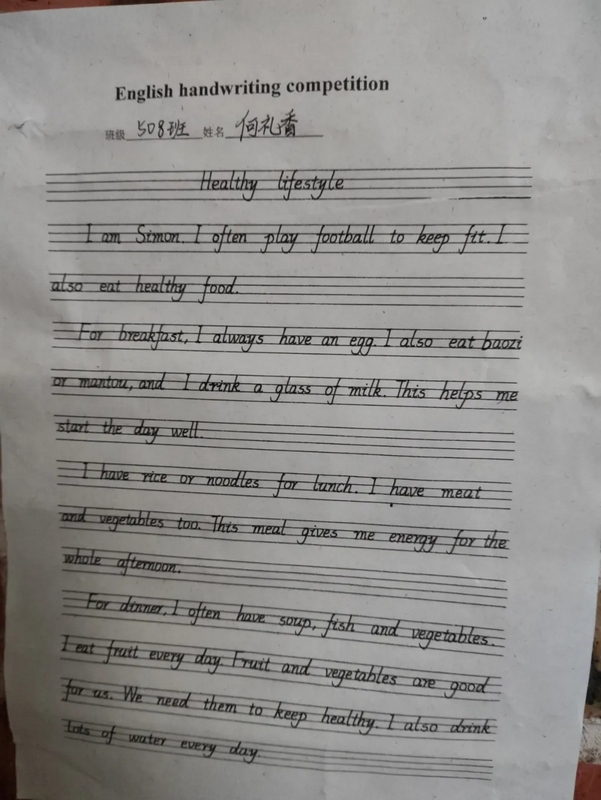 English handwriting competition
班级 508班 姓名 何礼香
Healthy lifestyle
I am Simon. I often play football to keep fit. I
also eat healthy food.
For breakfast, I always have an egg. I also eat baozi
or mantou, and I drink a glass of milk. This helps me
start the day well.
I have rice or noodles for lunch. I have meat
and vegetables too. This meal gives me energy for the
whole afternoon.
For dinner, I often have soup, fish and vegetables.
I eat fruit every day. Fruit and vegetables are good
for us. We need them to keep healthy. I also drink
lots of water every day.